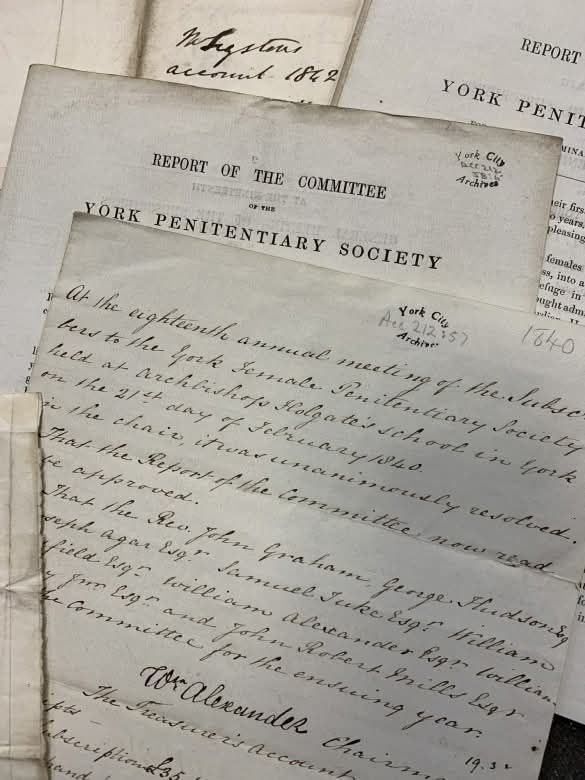 account 1842
REPORT
YORK PENIT
York City
Acc 212
58
Archives
REPORT OF THE COMMITTEE
OF THE
YORK PENITENTIARY SOCIETY
eir firs
o years.
pleasing
females
ss, into a
efuge in
ought adm
York City
Acc 212:57
Archives
1840
At the eighteenth annual meeting of the Subsc
bers to the York Female Penitentiary Society
held at Archbishop Holgate's school in York
on the 21st day of February 1840
in the chair, it was unanimously resolved.
That the Report of the Committee now read
be approved.
That the Rev. John Graham, George Hudson Esq
seph Agar Esqr. Samuel Tuke Esqr. William
field Esqr. William Alexander Esqr William
y Junr Esqr. and John Robert Mills Esqr
he Committee for the ensuing year.
Wm Alexander Chairm
19.3
The Treasurer's Account
ipts
ubscriptions £35